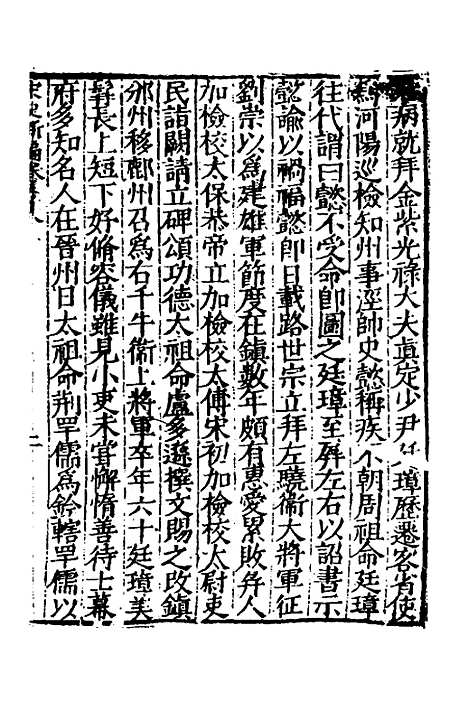 病就拜金紫光祿大夫真定少尹廷璋歷遷客省使
河陽巡檢知州事涇帥史懿稱疾不朝周祖命廷璋
往代謂曰懿不受命即圖之廷璋至屏左右以詔書示
懿諭以禍福懿即日載路世宗立拜左驍衛大將軍征
劉崇以爲建雄軍節度在鎮數年頗有惠愛累敗并人
加檢校太保恭帝立加檢校太傅宋初加檢校太尉吏
民詣闕請立碑頌功德太祖命盧多遜撰文賜之改鎮
邠州移鄜州召爲右千牛衛上將軍卒年六十廷璋美
髯長上短下好脩容儀雖見小吏未甞懈惰善待士幕
府多知名人在晉州日太祖命荆罕儒爲鈐轄罕儒以
宋史新編卷